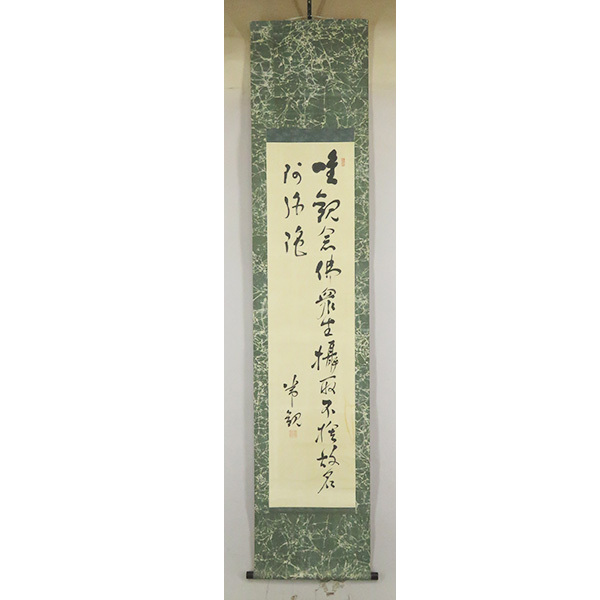 唯觀念佛衆生攝取不捨故名
阿弥陀
常觀